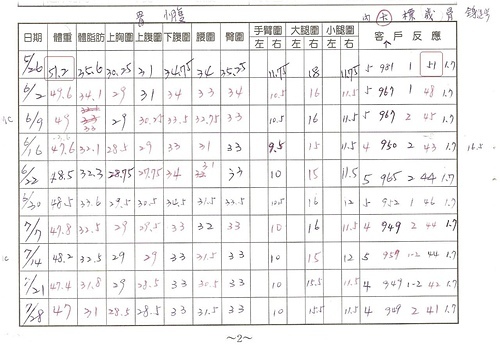 內 標 歲 骨
日期 體重 體脂肪 上胸圍 上腹圍 下腹圍 腰圍 臀圍 手臂圍 左 右 大腿圍 左 右 小腿圍 左 右 客戶反應
5/26 51.2 35.6 30.25 31 34.75 34 35.25 11.75 18 11.75 5 981 1 51 1.7
6/2 49.6 34.1 29 31 34 33 34 10.5 16 11.5 5 967 1 48 1.7
6/9 49 33 29 30.25 33.5 32.75 33 10.5 16 11.5 5 967 2 45 1.7
6/16 47.6 32.1 28.5 29 33 31 33 9.5 15 11.5 4 950 2 43 1.7
6/22 48.5 32.3 28.75 29.75 34 33 10 15 11.5 5 965 2 44 1.7
48.5 33.6 29.5 30.5 34.5 31.5 33.5 10.5 16 12 5 952 1 46 1.7
7/7 47.8 32.5 29 28.5 33 32 33 10 16 11.5 4 949 2 44 1.7
7/14 48.2 32.5 29 29 33 31.5 33 10 15 12 5 959 1-2 44 1.7
7/21 47.4 31.8 29 28.5 33 30.5 33 10 15.5 11.5 4 949 1-2 42 1.7
7/28 47 31 28.5 28.5 33 31.5 33 10 15.5 11.5 4 949 2 41 1.7
~2~